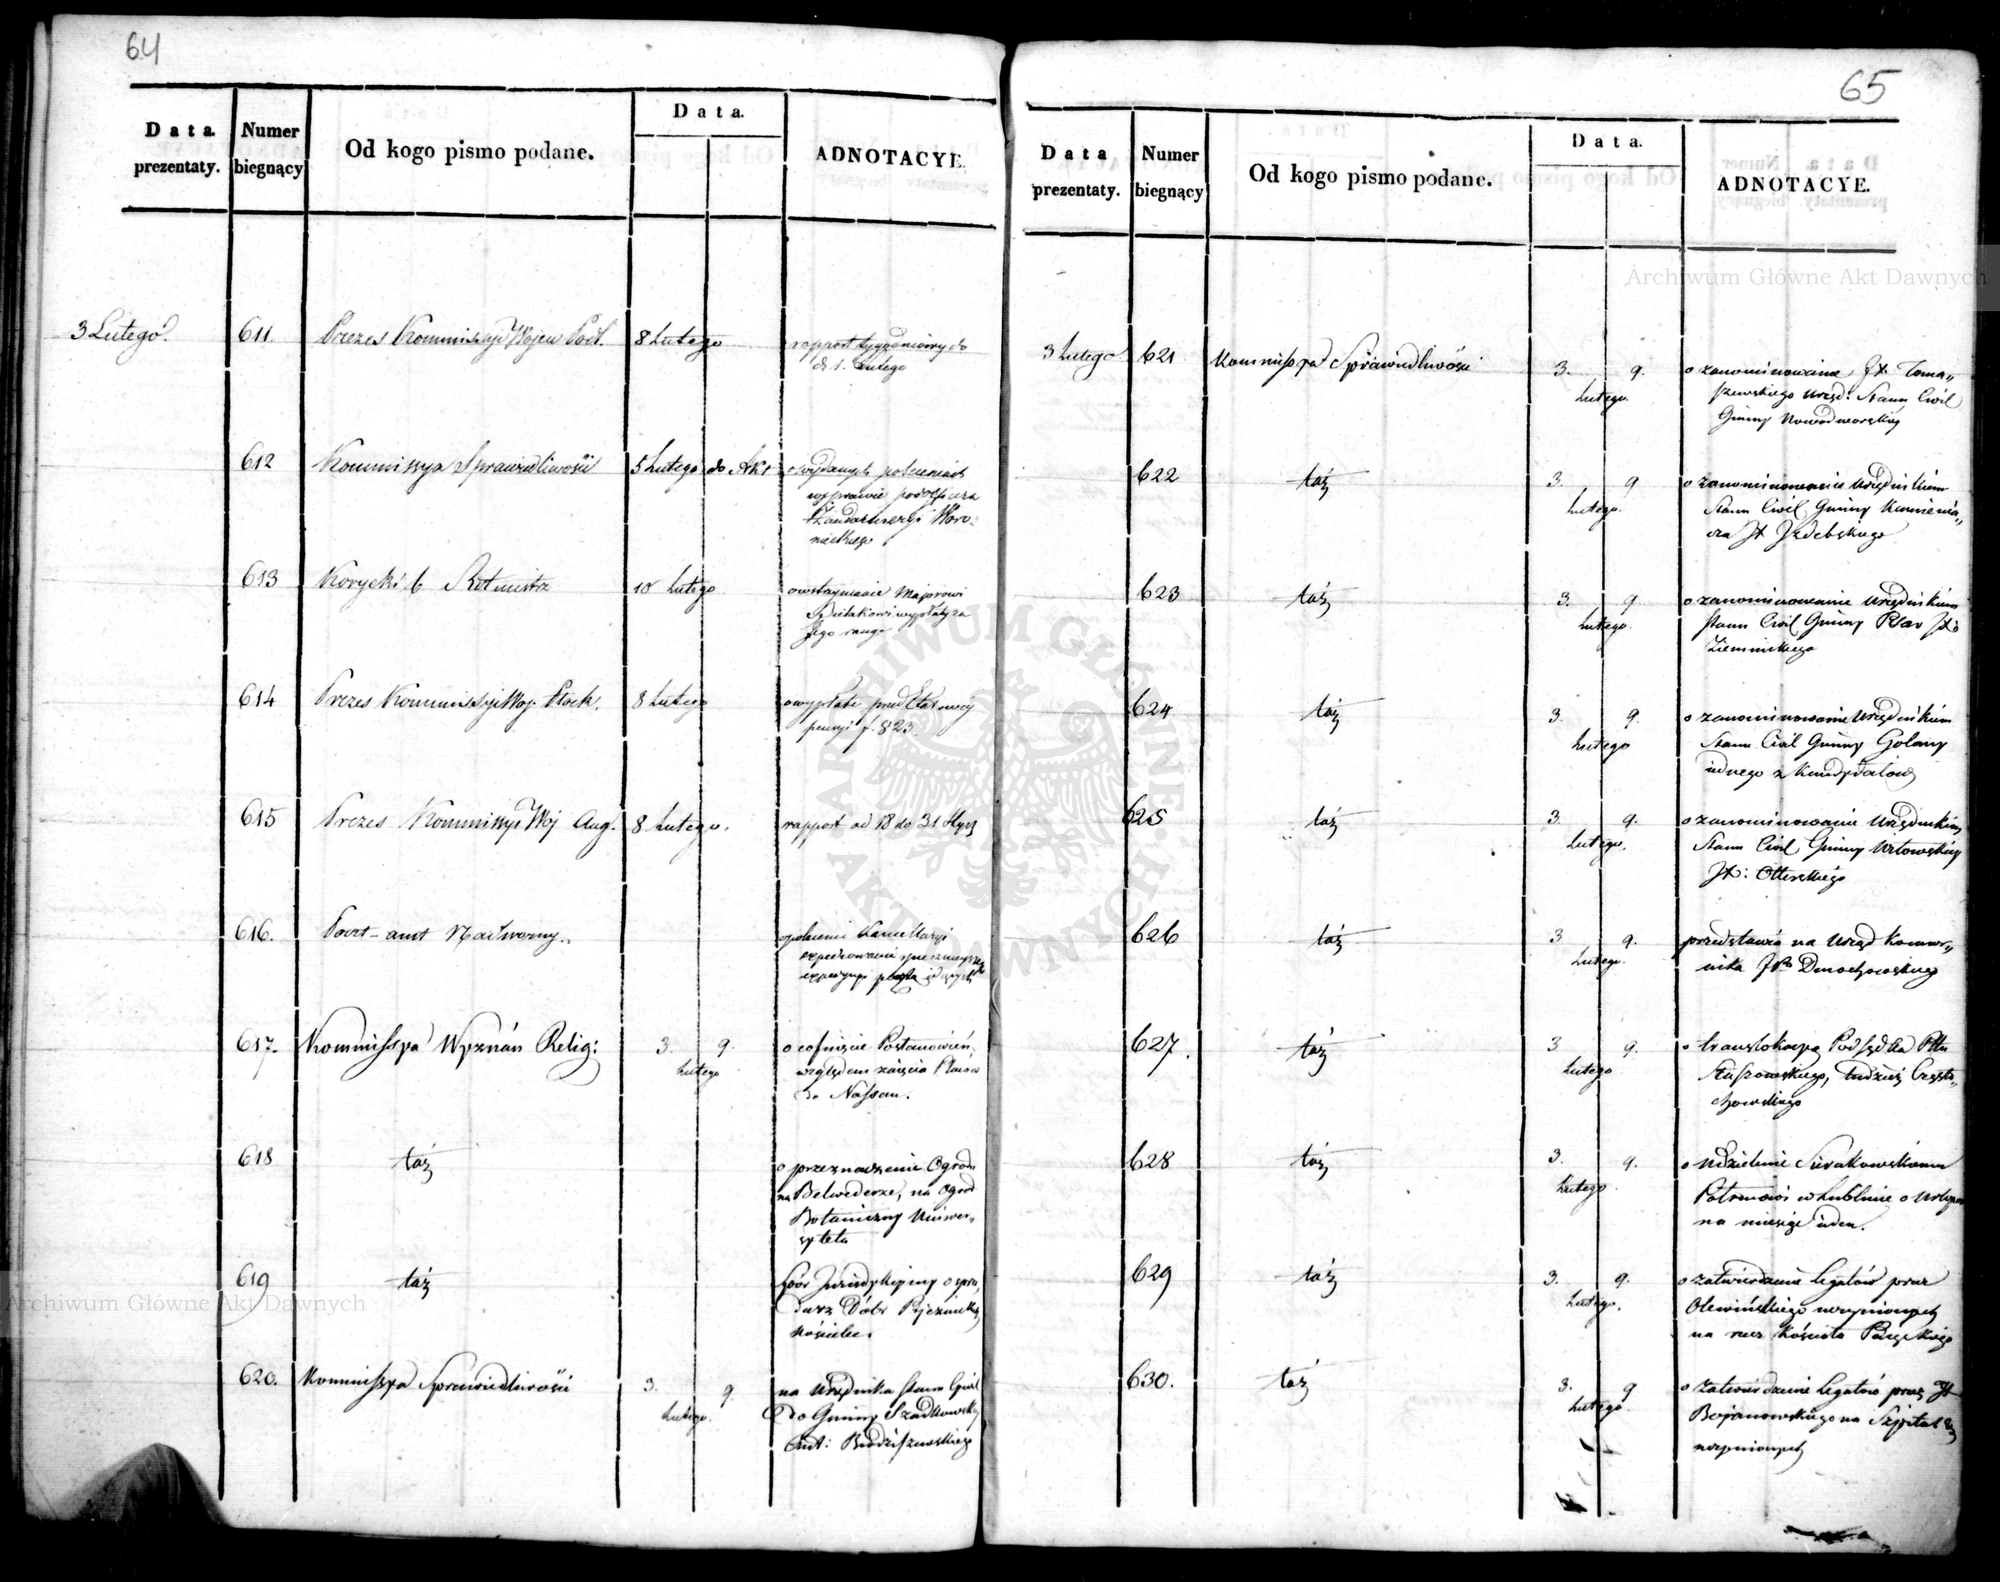 64
Data prezentaty.
Numer biegnący
Od kogo pismo podane.
Data.
ADNOTACYE.
3 Lutego.
611
Prezes Kommissyi Wojew Podl.
8 Lutego
rapport tygodniowy do
d. 1. Lutego
612
Kommissya Sprawiedliwości
5 Lutego do Akt
o wydanych poleceniach
w sprawie podoficera
Żandarmeryi Woro-
nieckiego
613
Korycki b Rotmistrz
10 Lutego
o wstrzymanie Majorowi
wypłaty za
Jego rangę
614
Prezes Kommissyi Woj. Płock.
8 Lutego
o wypłatę
pensyi f. 823.
615
Prezes Kommissyi Woj Aug.
8 Lutego.
rapport od 18 do 31 Stycz
616.
Poczt-amt Nadworny.
Kancellaryi
617.
Kommissya Wyznań Relig:
3. 9.
Lutego
o cofnięcie Postanowień,
względem zajęcia Placu
do Nassau.
618
táż
o przeznaczenie Ogrodu
na Belwederze, na Ogród
Botaniczny Uniwer„
sytetu
619
táż
Spór Jurisdykcyiny o sprze
darz Dóbr
Kościelec.
620.
Kommissya Sprawiedliwości
3. 9.
Lutego.
na Urzędnika Stanu Cywil
do Gminy Szadkowskiej
Ant: Brodziszewskiego
65
Data prezentaty.
Numer biegnący
Od kogo pismo podane.
Data.
ADNOTACYE.
3 Lutego
621
Kommissya Sprawiedliwości
3. 9.
Lutego.
o zanominowanie Jt. Toma„
szewskiego Urzęd: Stanu Civil
Gminy Nowodworskiey
622
táż
3. 9
Lutego.
o zanominowanie Urzędnikiem
Stanu Civil Gminy Kamieniá„
cza Jt Izdebskiego
623
táż
3. 9
Lutego.
o zanominowanie Urzędnikiem
Stanu Civil Gminy
Ziemińskiego
624
táż
3. 9.
Lutego
o zanominowanie Urzędnikiem
Stanu Civil Gminy Golany
iednego z Kandydatów
625
táż
3. 9.
Lutego.
o zanominowanie Urzędnikiem
Stanu Civil Gminy Witowskiey
Jt: Otterskiego
626
táż
3 9.
Lutego.
przedstawia na Urząd Komor„
nika Jta Dmochowskiego
627.
táż
3 9.
Lutego
o translokacyą Podsędka Pttu
Staszowskiego, tudzież Często„
chowskiego
628
táż
3. 9.
Lutego.
o udzielenie Sierakowskiemu
Patronowi w Lublinie o Urlopu
na miesiąc ieden.
629
táż
3. 9.
Lutego.
o zatwierdzenie Legatów przez
Olewińskiego uczynionych
na rzecz Kościoła
630.
táż
3. 9
Lutego.
o zatwierdzenie Legatów przez Jt
Bojanowskiego na Szpital
uczynionych
Archiwum Główne Akt Dawnych
Archiwum Główne Akt Dawnych
ARCHIWUM GŁÓWNE AKT DAWNYCH